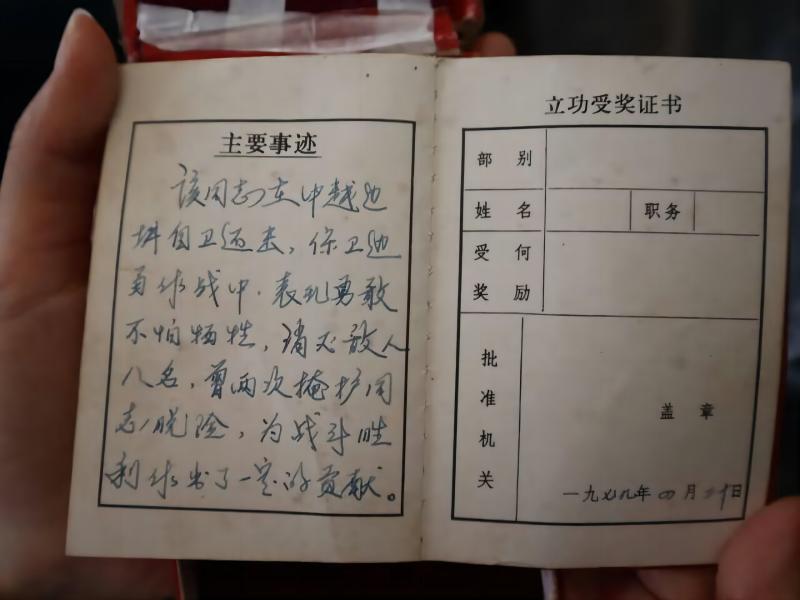 主要事迹
该同志在中越边
境自卫还击，保卫边
疆作战中，表现勇敢
不怕牺牲，消灭敌人
八名，曾两次掩护同
志脱险，为战斗胜
利作出了一定的贡献。
立功受奖证书
部别
姓名
职务
受何
奖励
批准机关
盖章
一九七九年四月 日